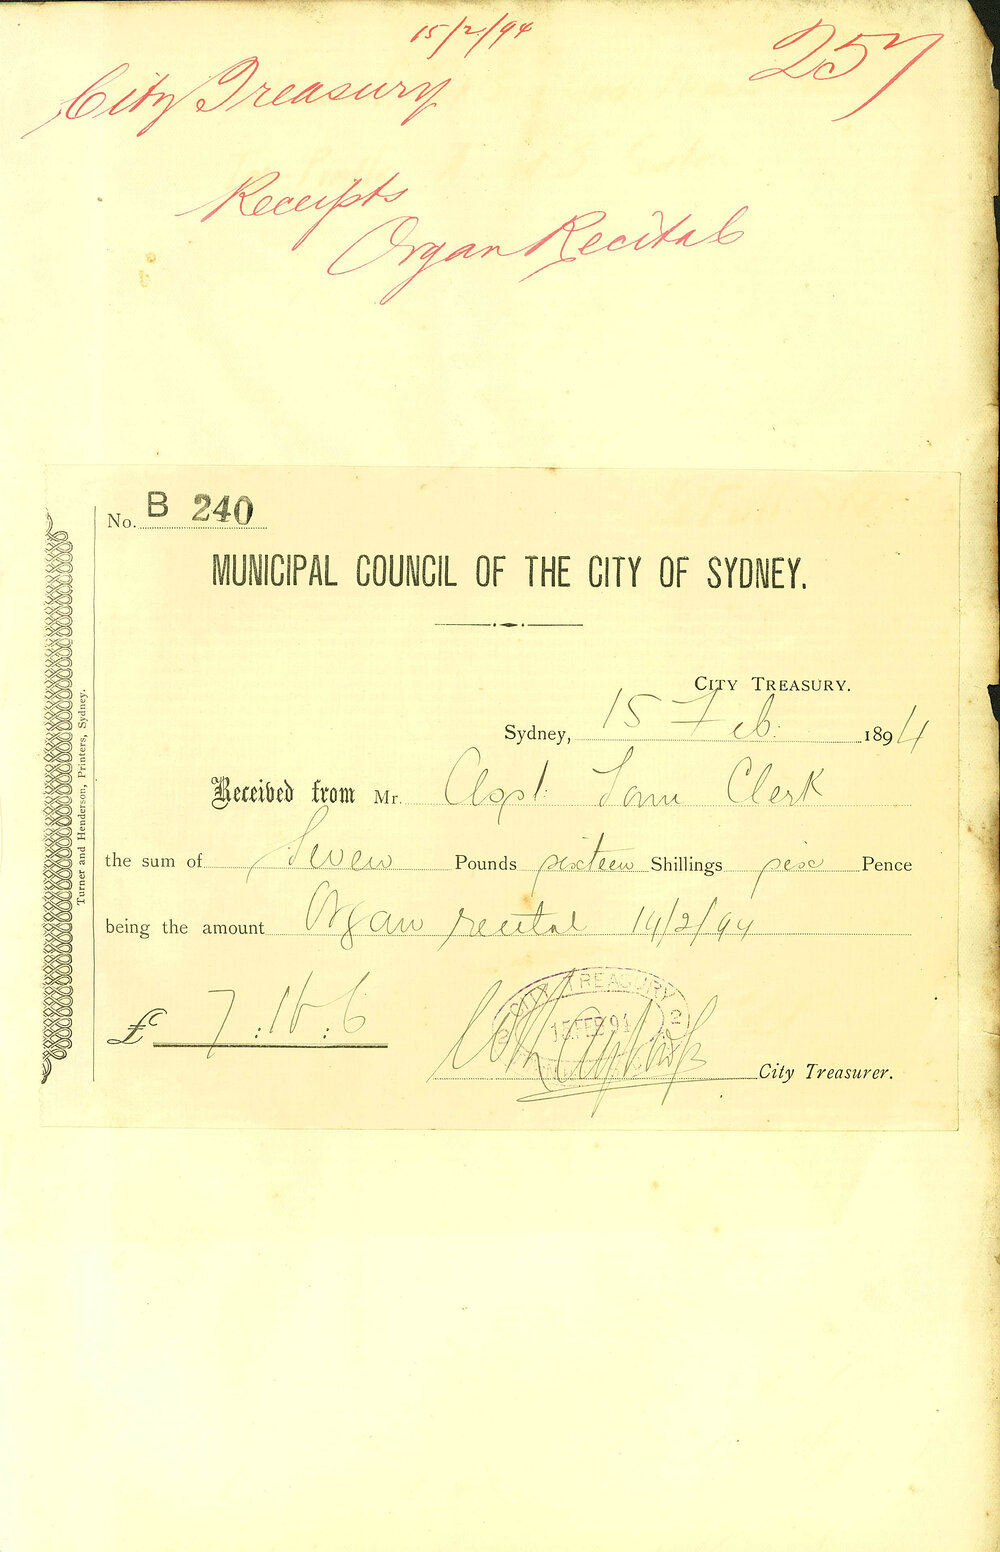 15/2/94
257
City Treasury
Receipts
Organ Recital
No. B 240
MUNICIPAL COUNCIL OF THE CITY OF SYDNEY.
CITY TREASURY.
Sydney, 15 Feb. 1894
Received from Mr. Town Clerk
the sum of Seven Pounds sixteen Shillings six Pence
being the amount Organ recital 14/2/94
£ 7.16.6
CITY TREASURY
15 FEB 94
City Treasurer.
Turner and Henderson, Printers, Sydney.